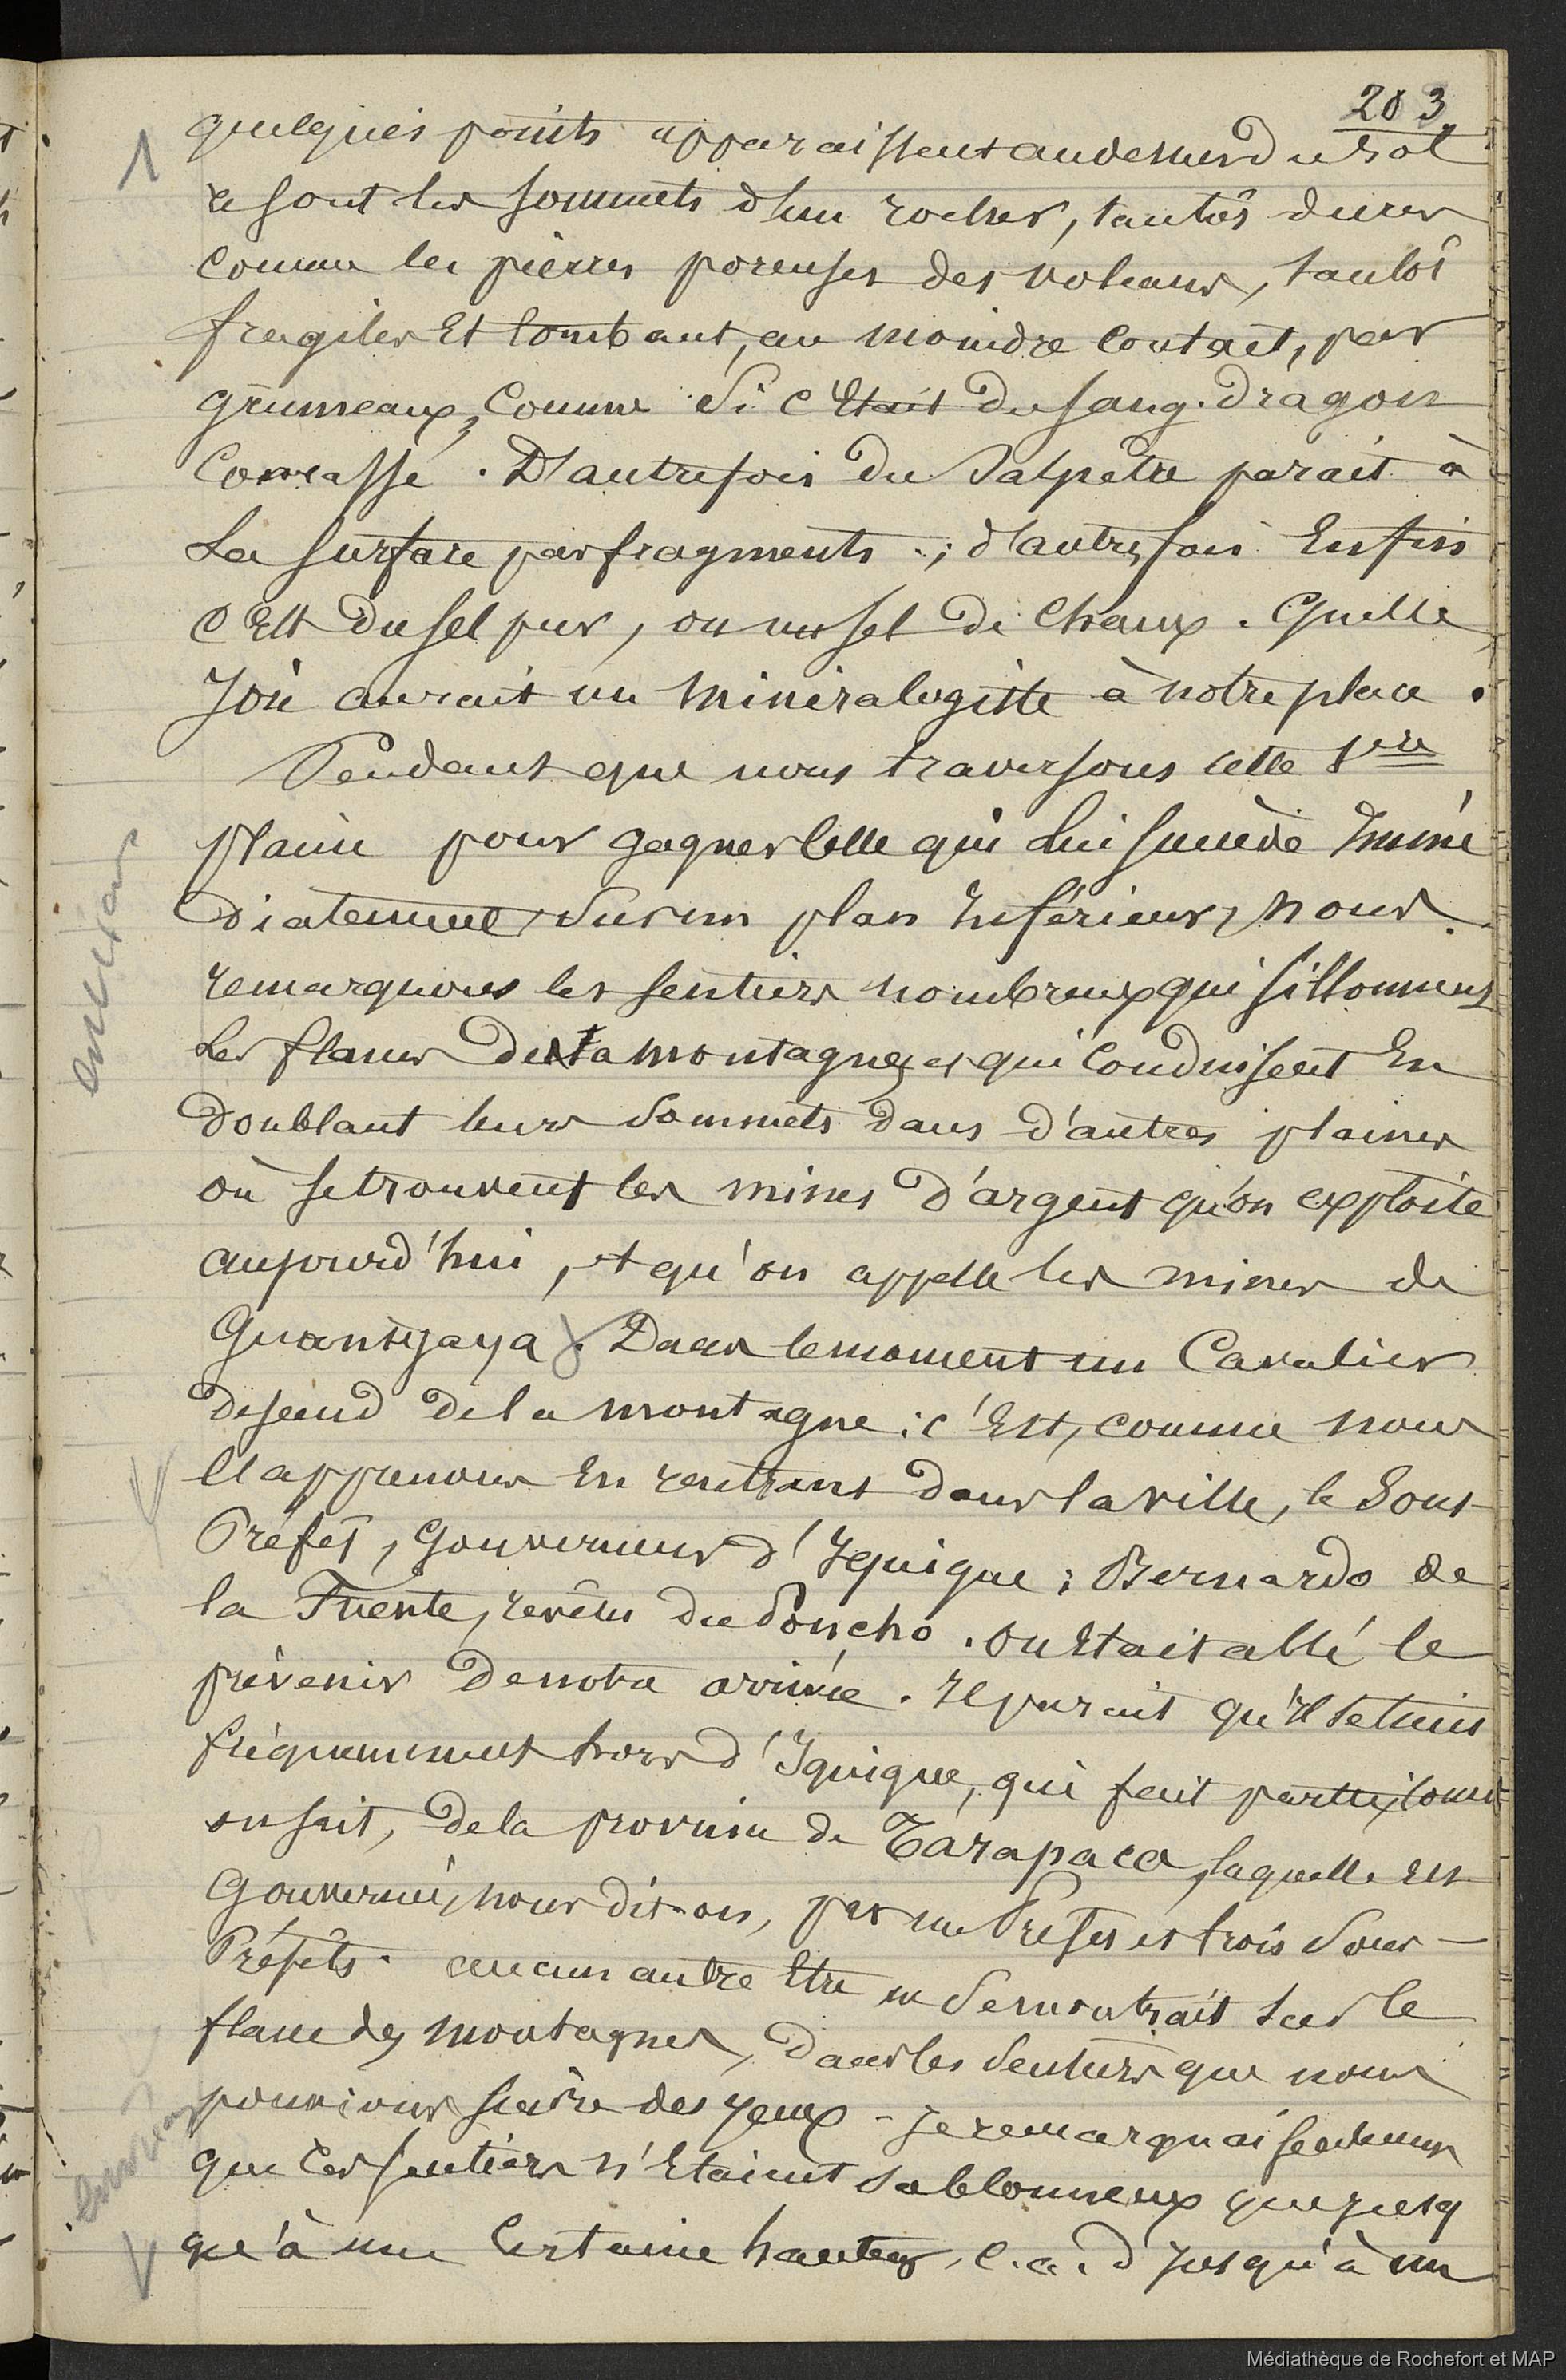 203
quelques points apparaissent au dessus du sol
ce sont les sommets d'un rocher, tantôt durs
comme les pierres poreuses des volcans, tantôt
fragiles et tombant, au moindre contact, par
grumeaux, comme si c'était du sang-dragon
concassé. D'autrefois du salpêtre parait à
la surface par fragments ; d'autres fois enfin
c'est du sel pur, ou un sel de chaux. Quelle
joie aurait un minéralogiste à notre place.
Pendant que nous traversons cette 1ère
plaine pour gagner celle qui lui succède immé
diatement sur un plan inférieur, nous
remarquons les sentiers nombreux qui sillonnent
les flancs de la montagne, et qui conduisent en
doublant leurs sommets dans d'autres plaines
où se trouvent les mines d'argent qu'on exploite
aujourd'hui, et qu'on appelle les mines de
Guantajaya. Dans le moment un cavalier
descend de la montagne : c'est, comme nous
l'apprenons en rentrant dans la ville, le Sous-
Préfet, gouverneur d'Iquique ; Bernardo de
la Fuente, revêtu du Poncho. On était allé le
prévenir de notre arrivée. Il parait qu'il se tient
fréquemment hors d'Iquique, qui fait partie, comme
on sait, de la province de Tarapaca, laquelle est
gouvernée, nous dit-on, par un Préfet et trois Sous-
Préfets. aucun autre être ne se montrait sur le
flanc des montagnes, dans les sentiers que nous
pouvions suivre des yeux - je remarquai seulement
que ces sentiers n'étaient sablonneux que jusq
qu'à une certaine hauteur, c. a. d jusqu'à un
Médiathèque de Rochefort et MAP